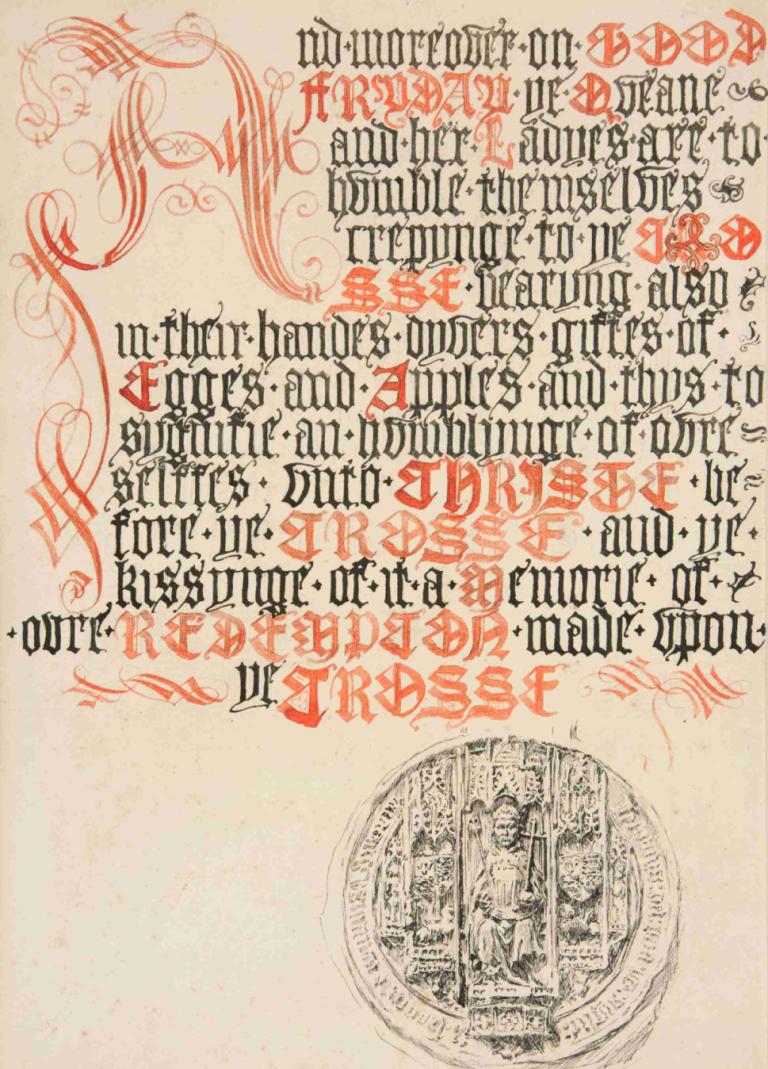 And·moreover·on·GOOD
FRYDAY·ye·Qveane
and·her·Ladyes·are·to·
hvmble·themselves
crepynge·to·ye CRO
SSE·bearyng·also
in·their·handes·dyvers·giftes·of·
Egges·and·Apples·and·thys·to
sygnifie·an·hvmblynge·of·ovre
selffes·vnto·CHRISTE·be
fore·ye·CROSSE·and·ye·
kissynge·of·it·a·Memorie·of·
·ovre·REDEMPCION·made·vpon·
ye CROSSE